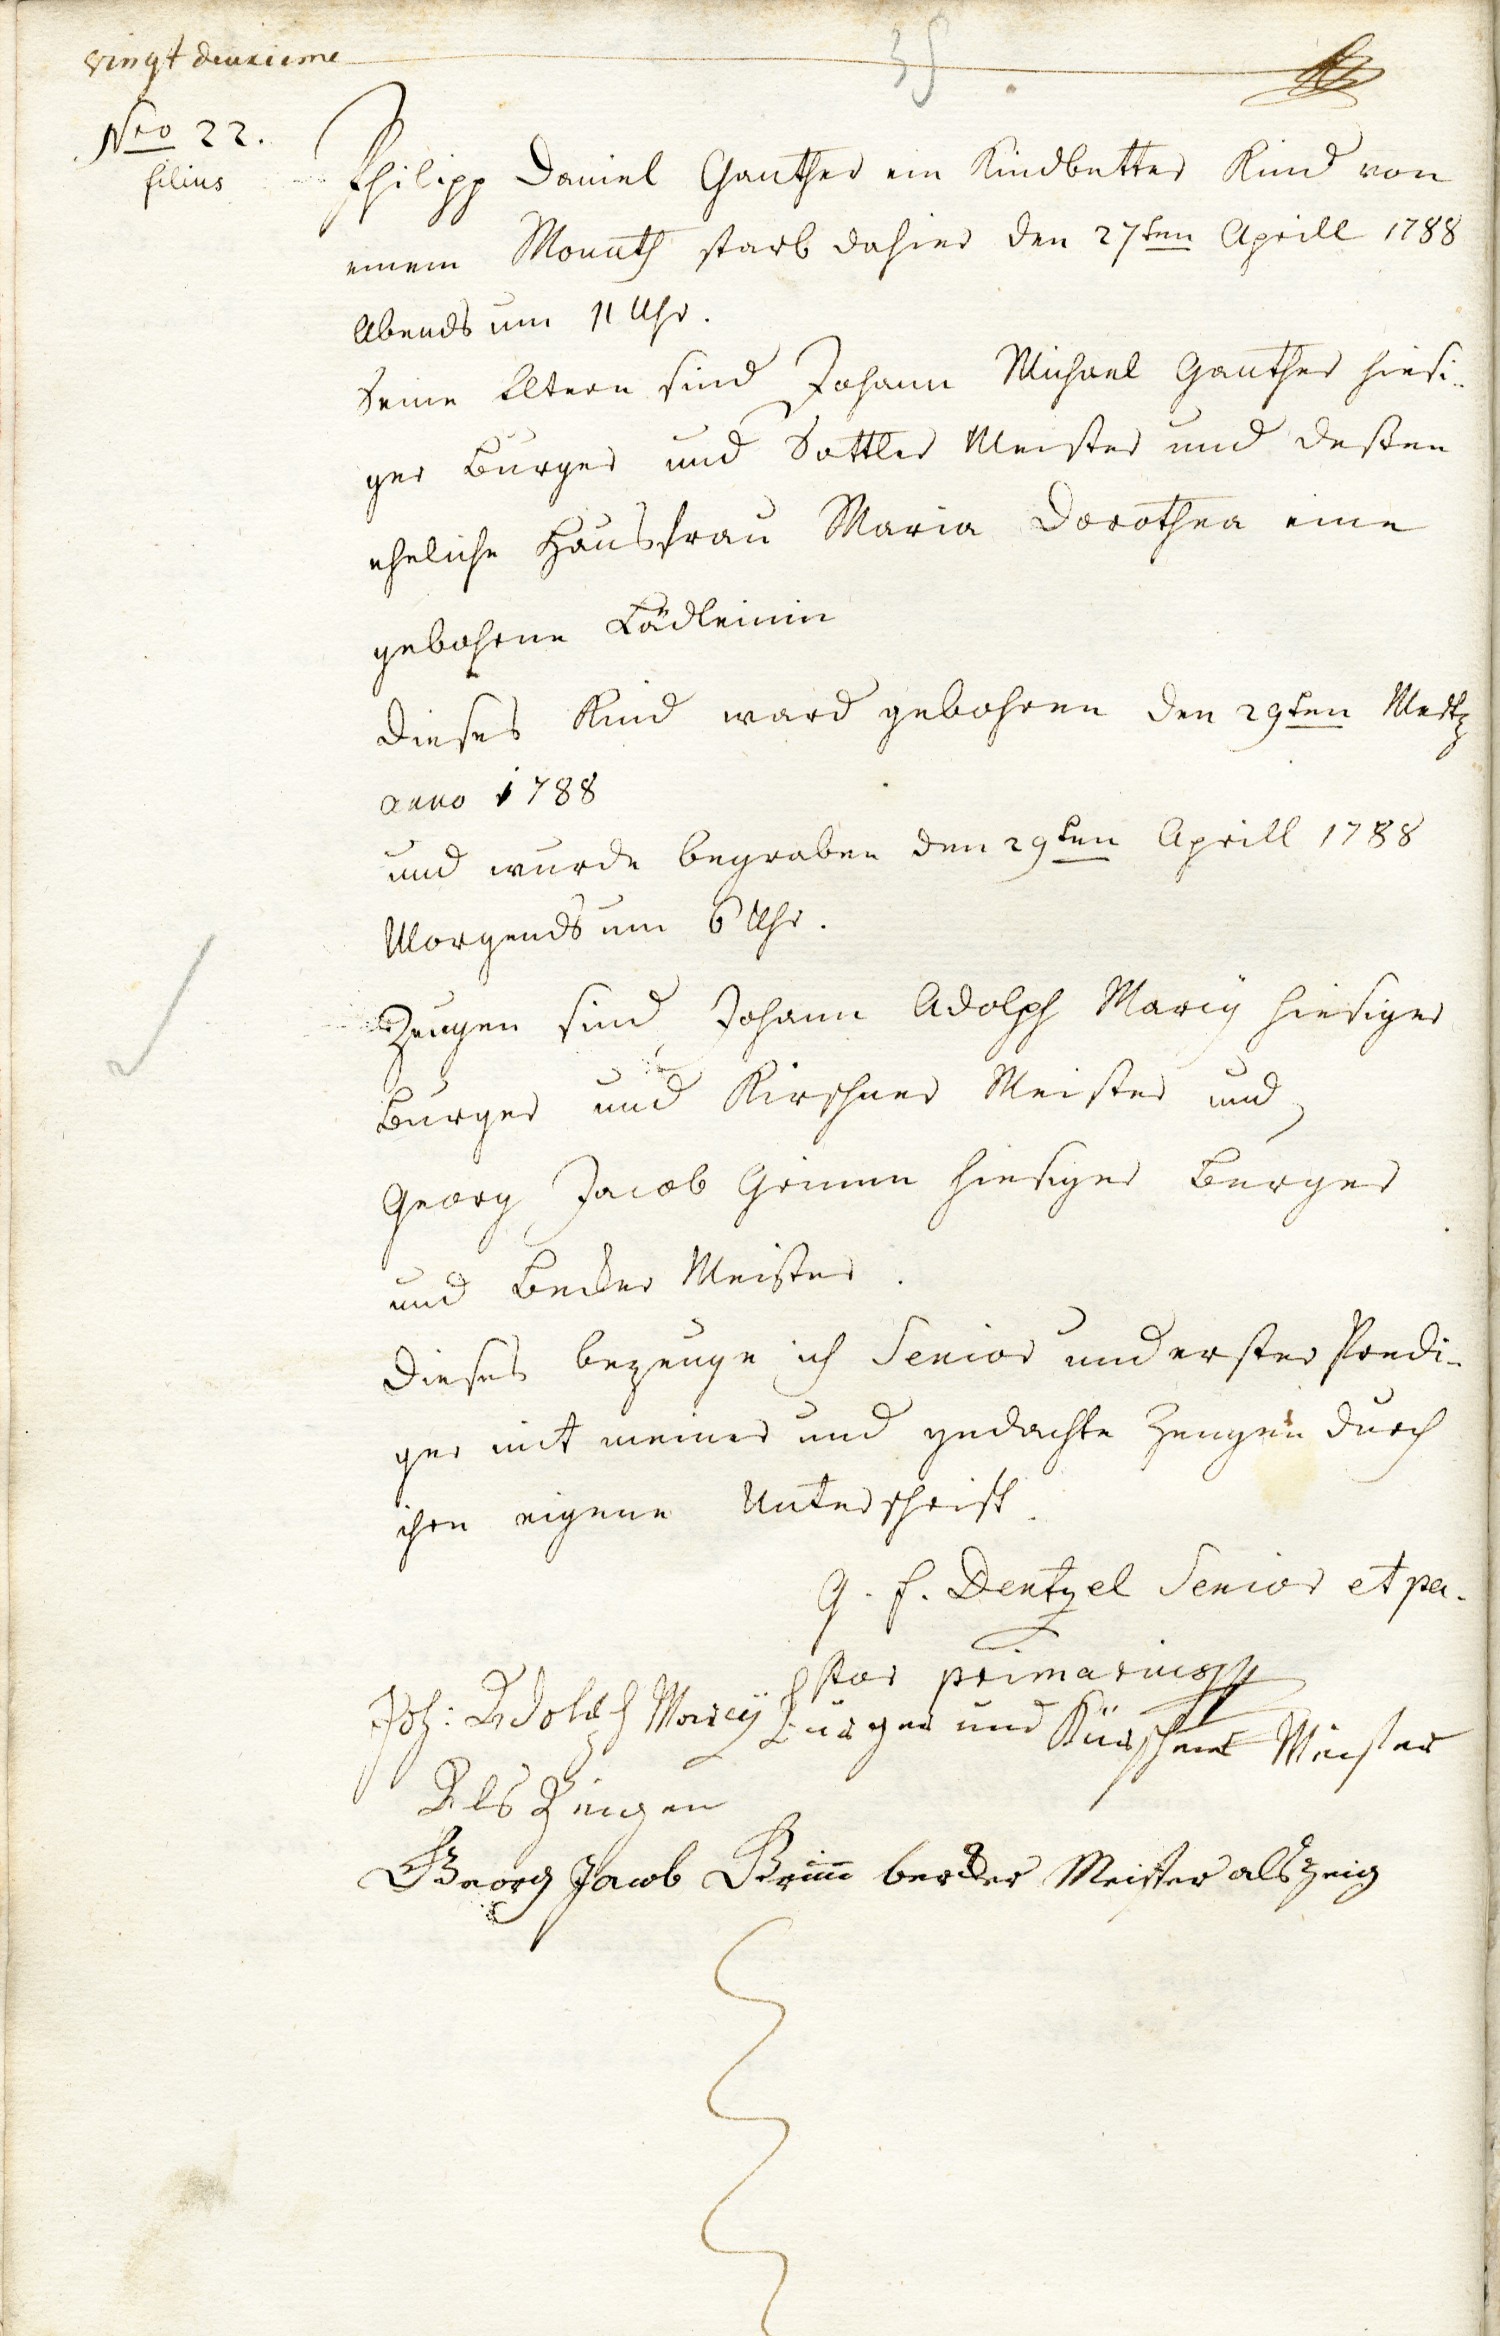 vingt deuxieme
35
Nro 22.
filius
Philipp Daniel Ganther ein Kindbetter Kind von
einem Monath starb dahier den 27ten Aprill 1788
Abends um 11 Uhr.
Seine Eltern sind Johann Michael Ganther hiesi-
ger Burger und Sattler Meister und dessen
eheliche Hausfrau Maria Dorothea eine
gebohrne Lädleinin
dieses Kind ward gebohren den 29ten Mertz
anno 1788
und wurde begraben den 29ten Aprill 1788
Morgends um 6 Uhr.
Zeugen sind Johann Adolph Marcÿ hiesiger
Burger und Kirschner Meister und
Georg Jacob Grimm hiesiger Burger
und Becker Meister.
dieses bezeuge ich Senior und erster Predi-
ger mit meiner und gedachte Zeugen durch
ihre eigene Unterschrift.
G. F. Dentzel Senior et pa-
stor primarius
Joh: Adolph Marcÿ Burger und Kürschner Meister
Als Zeigen
Georg Jacob Grim̅ becker Meister als Zeig